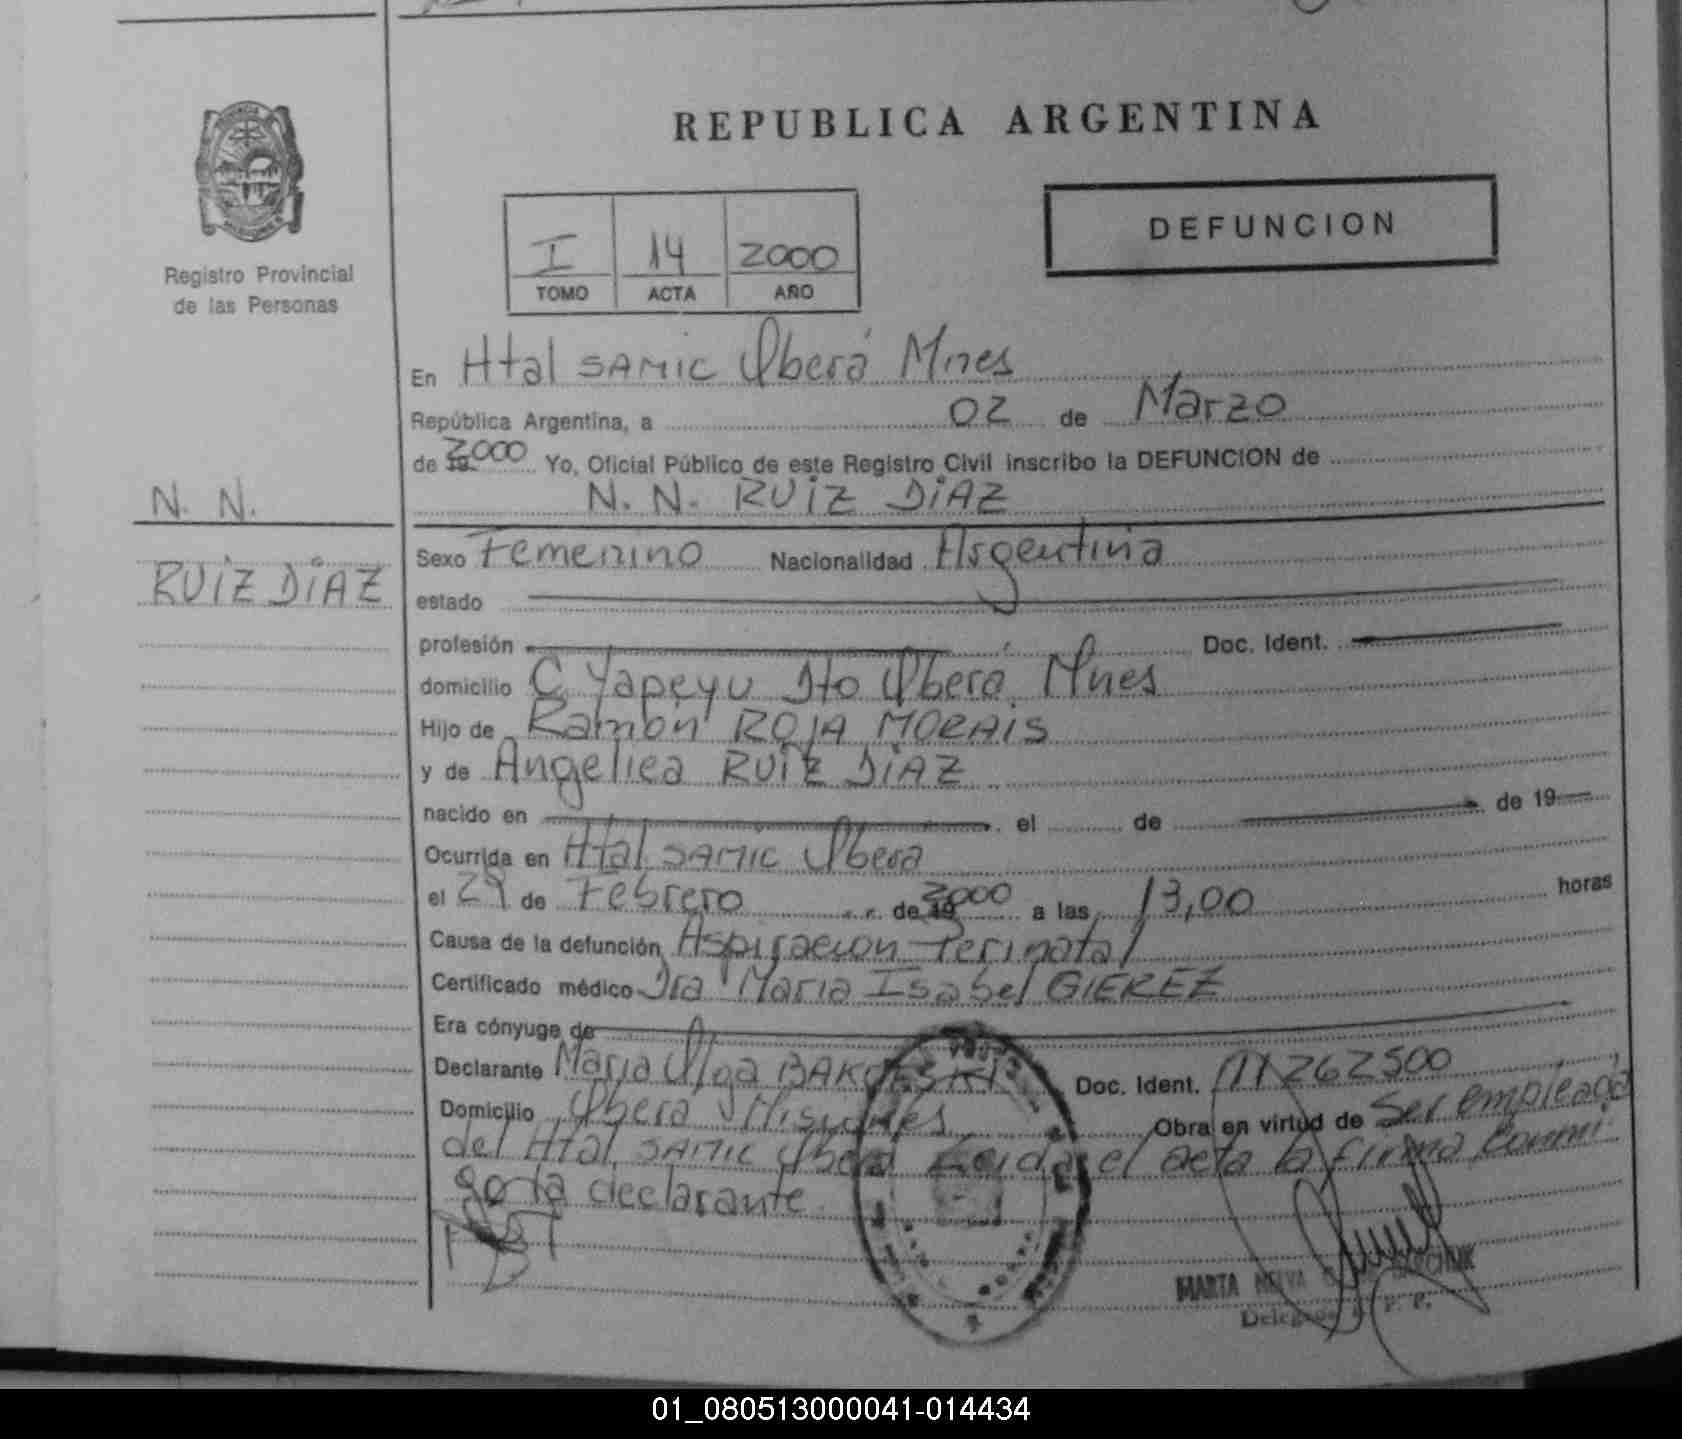 REPUBLICA ARGENTINA
DEFUNCION
I 14 2000
TOMO ACTA AÑO
Registro Provincial
de las Personas
En Htal SAMIC Oberá Mnes
República Argentina, a 02 de Marzo
de 19 2000 Yo, Oficial Público de este Registro Civil inscribo la DEFUNCION de
N. N. RUIZ DIAZ
N. N.
RUIZ DIAZ
Sexo Femenino Nacionalidad Argentina
estado
profesión Doc. Ident.
domicilio C Yapeyu Dto Oberá Mnes
Hijo de Ramón ROJA MORAIS
y de Angelica RUIZ DIAZ
nacido en el de de 19
Ocurrida en Htal SAMIC Obera
el 29 de Febrero de 19 2000 a las 13,00 horas
Causa de la defunción Aspiracion Perinatal
Certificado médico Dra Maria Isabel GIEREZ
Era cónyuge de
Declarante Maria Olga Doc. Ident. 11262500
Domicilio Obera Misiones Obra en virtud de Ser empleada
del Htal SAMIC Obera Leida el acta la firma conmi
go la declarante
MARTA
01_080513000041-014434